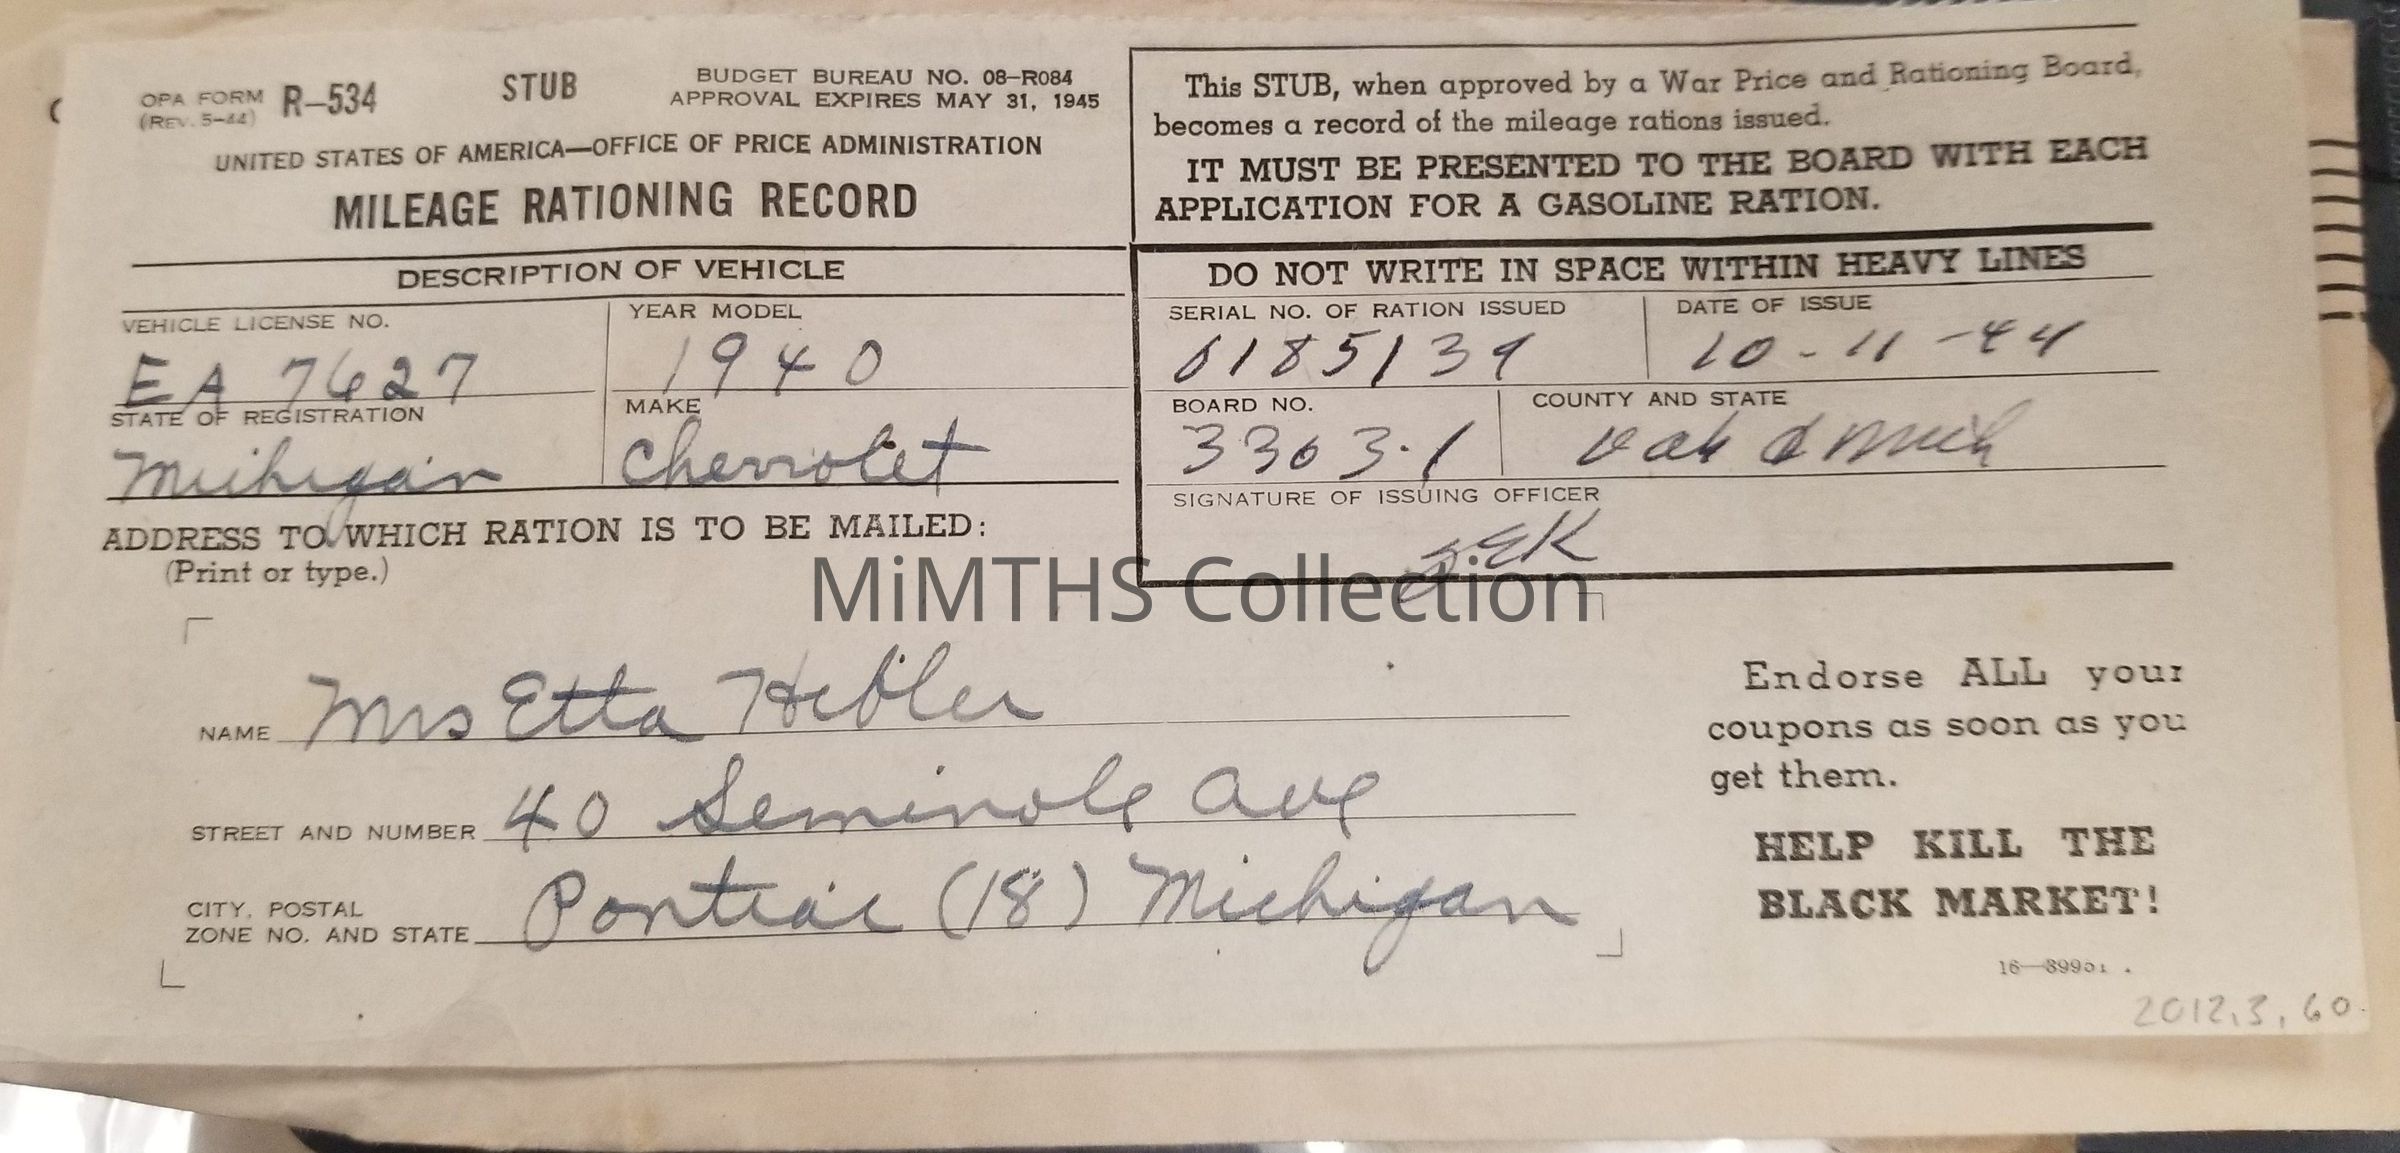 OPA FORM R-534
(REV. 5-44)
STUB
BUDGET BUREAU NO. 08-R084
APPROVAL EXPIRES MAY 31, 1945
UNITED STATES OF AMERICA—OFFICE OF PRICE ADMINISTRATION
MILEAGE RATIONING RECORD
This STUB, when approved by a War Price and Rationing Board,
becomes a record of the mileage rations issued.
IT MUST BE PRESENTED TO THE BOARD WITH EACH
APPLICATION FOR A GASOLINE RATION.
DESCRIPTION OF VEHICLE
VEHICLE LICENSE NO.
EA 7627
YEAR MODEL
1940
STATE OF REGISTRATION
Michigan
MAKE
Chevrolet
DO NOT WRITE IN SPACE WITHIN HEAVY LINES
SERIAL NO. OF RATION ISSUED
DATE OF ISSUE
10-11-44
BOARD NO.
3303-1
COUNTY AND STATE
Oak Mich
SIGNATURE OF ISSUING OFFICER
ADDRESS TO WHICH RATION IS TO BE MAILED:
(Print or type.)
MiMTHS Collection
NAME Mrs Etta Hibler
STREET AND NUMBER 40 Seminole Ave
CITY, POSTAL
ZONE NO. AND STATE Pontiac (18) Michigan
Endorse ALL your
coupons as soon as you
get them.
HELP KILL THE
BLACK MARKET!
2012.3.60